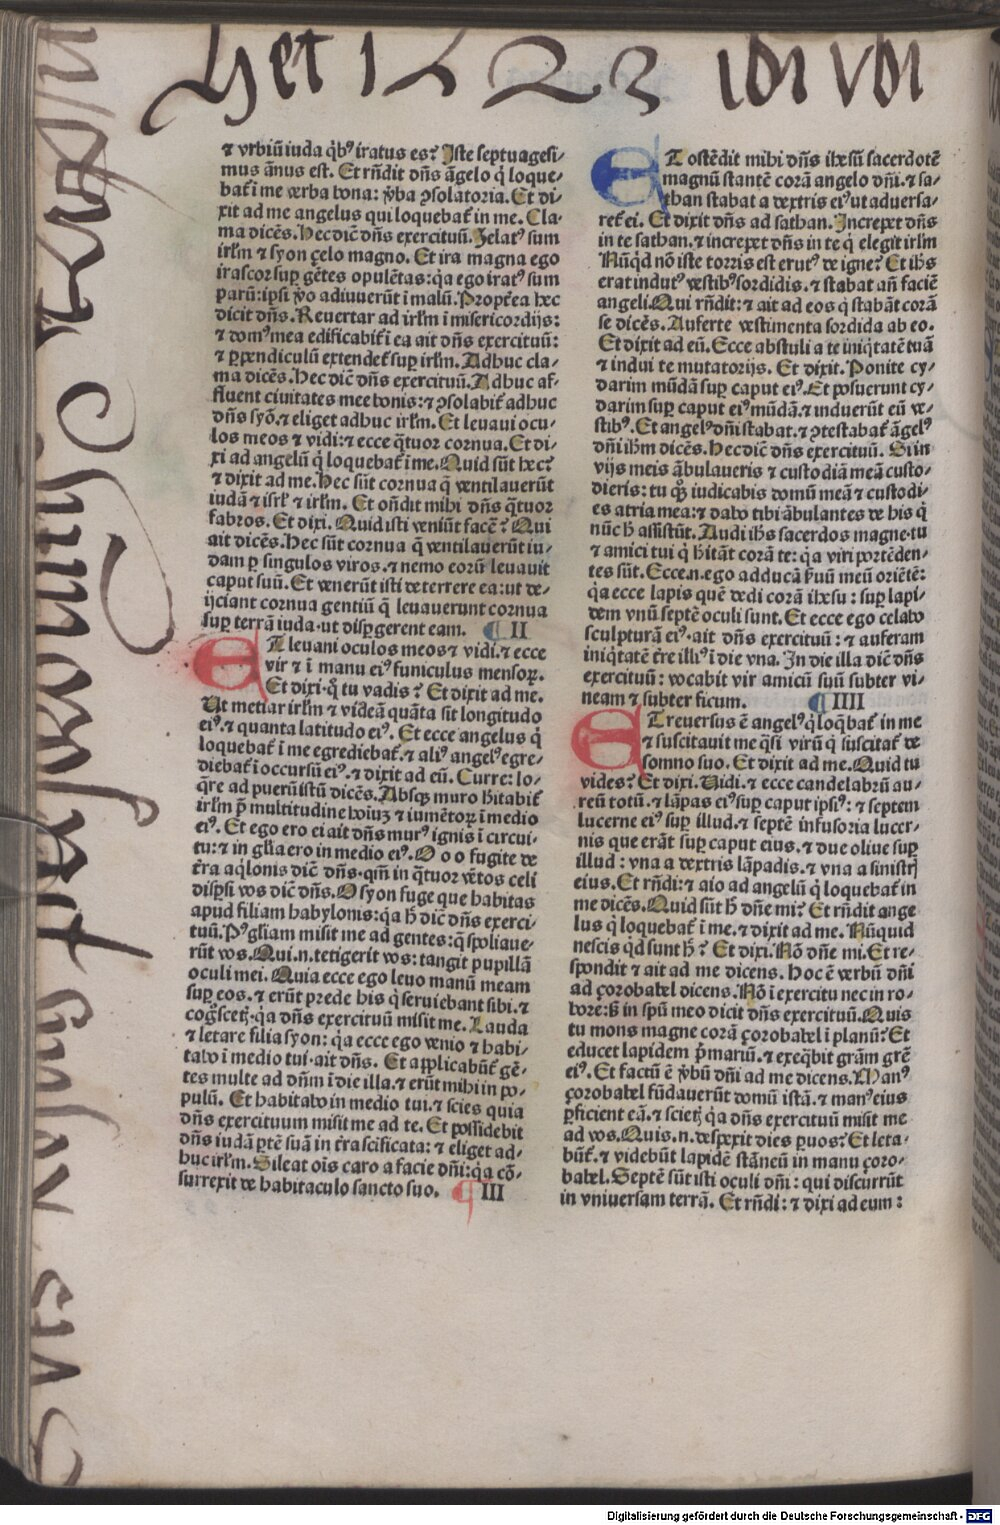 ⁊ vrbiū iuda q̄bꝰ iratus es? Iste septuagesi⸗
mus ānus est. Et rn̄dit dn̄s āgelo q̇ loque⸗
bat̄ ī me verba bona: v̓ba ꝯsolatoria. Et di⸗
xit ad me angelus qui loquebat̄ in me. Cla⸗
ma dicēs. Hec dic̄ dn̄s exercituū. Zelatꝰ sum
irlm̄ ⁊ syon çelo magno. Et ira magna ego
irascor suꝑ gētes opulētas: q̇a ego iratꝰ sum
parū: ip̄si v̓o adiuuerūt ī malū. Propt̄ea hec
dicit dn̄s. Reuertar ad irlm̄ ī misericordijs:
⁊ domꝰ mea edificabit̄ ī ea ait dn̄s exercituū:
⁊ ꝑpendiculū extendet̄ suꝑ irlm̄. Adhuc cla⸗
ma dicēs. Hec dic̄ dn̄s exercituū. Adhuc af⸗
fluent ciuitates mee bonis: ⁊ ꝯsolabit̄ adhuc
dn̄s syō. ⁊ eliget adhuc irlm̄. Et leuaui ocu⸗
los meos ⁊ vidi: ⁊ ecce q̄tuor cornua. Et di⸗
xi ad angelū q̇ loquebat̄ ī me. Quid sūt hec?
⁊ dixit ad me. Hec sūt cornua q̄ ventilauerūt
iudā ⁊ isrl̄ ⁊ irlm̄. Et on̄dit mihi dn̄s q̄tuor
fabros. Et dixi. Quid isti veniūt facē? Qui
ait dicēs. Hec sūt cornua q̄ ventilauerūt iu⸗
dam ꝑ singulos viros. ⁊ nemo eorū leuauit
caput suū. Et venerūt isti deterrere ea: ut de⸗
ijciant cornua gentiū q̄ leuauerunt cornua
suꝑ terrā iuda · ut disꝑgerent eam. ¶ II
ET leuaui oculos meos ⁊ vidi. ⁊ ecce
vir ⁊ ī manu eiꝰ funiculus mensoꝝ.
Et dixi · q̊ tu vadis? Et dixit ad me.
Ut metiar irlm̄ ⁊ videā quāta sit longitudo
eiꝰ. ⁊ quanta latitudo eiꝰ. Et ecce angelus q̇
loquebat̄ ī me egrediebat̄. ⁊ aliꝰ angelꝰ egre⸗
diebat̄ ī occursū eiꝰ. ⁊ dixit ad eū. Curre: lo⸗
q̄re ad puerū istū dicēs. Absqꝫ muro hitabit̄
irlm̄ p̄ multitudine hoīuꝫ ⁊ iumētoꝝ ī medio
eiꝰ. Et ego ero ei ait dn̄s murꝰ ignis ī circui⸗
tu: ⁊ in gl̄ia ero in medio eiꝰ. O o o fugite de
t̄ra aq̇lonis dic̄ dn̄s. qm̄ in q̄tuor vētos celi
disꝑsi vos dic̄ dn̄s. O syon fuge que habitas
apud filiam babylonis: q̇a h̄ dic̄ dn̄s exerci⸗
tuū. Pꝰ gl̄iam misit me ad gentes: q̄ spoliaue⸗
rūt vos. Qui .n. tetigerit vos: tangit pupillā
oculi mei. Quia ecce ego leuo manū meam
suꝑ eos. ⁊ erūt prede his q̇ seruiebant sibi. ⁊
cog̊scetꝭ · q̇a dn̄s exercituū misit me. Lauda
⁊ letare filia syon: q̇a ecce ego venio ⁊ habi⸗
tabo ī medio tui · ait dn̄s. Et applicabūt̄ gē⸗
tes multe ad dn̄m ī die illa. ⁊ erūt mihi in po⸗
pulū. Et habitabo in medio tui. ⁊ scies quia
dn̄s exercituum misit me ad te. Et possidebit
dn̄s iudā ꝑtē suā in t̄ra scificata: ⁊ eliget ad⸗
huc irlm̄. Sileat oīs caro a facie dn̄i: q̇a cō⸗
surrexit de habitaculo sancto suo. ¶ III
ET ostēdit mihi dn̄s ihesū sacerdotē
magnū stantē corā angelo dn̄i. ⁊ sa⸗
than stabat a dextris eiꝰ ut aduersa⸗
ret̄ ei. Et dixit dn̄s ad sathan. Increpet dn̄s
in te sathan. ⁊ increpet dn̄s in te q̇ elegit irlm̄
Nūq̇d nō iste torris est erutꝰ de igne? Et ihs̄
erat indutꝰ vestibꝰ sordidis. ⁊ stabat an̄ faciē
angeli. Qui rn̄dit: ⁊ ait ad eos q̇ stabāt corā
se dicēs. Auferte vestimenta sordida ab eo.
Et dixit ad eū. Ecce abstuli a te iniq̇tatē tuā
⁊ indui te mutatorijs. Et dixit. Ponite cy⸗
darim mūdā suꝑ caput eiꝰ. Et posuerunt cy⸗
darim suꝑ caput eiꝰ mūdā. ⁊ induerūt eū ve⸗
stibꝰ. Et angelꝰ dn̄i stabat. ⁊ ꝯtestabat̄ āgelꝰ
dn̄i ihm̄ dicēs. Hec dic̄ dn̄s exercituū. Si in
vijs meis ābulaueris ⁊ custodiā meā custo⸗
dieris: tu qꝫ iudicabis domū meā ⁊ custodi⸗
es atria mea: ⁊ dabo tibi ābulantes de his q̇
nūc h̄ assistūt. Audi ihs̄ sacerdos magne · tu
⁊ amici tui q̇ hītāt corā te: q̇a viri portēden⸗
tes sūt. Ecce .n. ego adducā s̓uū meū oriētē:
q̇a ecce lapis quē dedi corā ihesu: suꝑ lapi⸗
dem vnū septē oculi sunt. Et ecce ego celabo
sculpturā eiꝰ · ait dn̄s exercituū: ⁊ auferam
iniq̇tatē t̄re illiꝰ ī die vna. In die illa dic̄ dn̄s
exercituū: vocabit vir amicū suū subter vi⸗
neam ⁊ subter ficum. ¶ IIII
ET reuersus ē angelꝰ q̇ loq̄bat̄ in me
⁊ suscitauit me q̄si virū q̇ suscitat̄ de
somno suo. Et dixit ad me. Quid tu
vides? Et dixi. Uidi. ⁊ ecce candelabrū au⸗
reū totū. ⁊ lāpas eiꝰ suꝑ caput ipsiꝰ: ⁊ septem
lucerne eiꝰ suꝑ illud. ⁊ septē infusoria lucer⸗
nis que erāt suꝑ caput eius. ⁊ due oliue suꝑ
illud: vna a dextris lāpadis. ⁊ vna a sinistrꝭ
eius. Et rn̄di: ⁊ aio ad angelū q̇ loquebat̄ in
me dicēs. Quid sūt h̄ dn̄e mi? Et rn̄dit ange
lus q̇ loquebat̄ ī me. ⁊ dixit ad me. Nūquid
nescis qd̓ sunt h̄? Et dixi. Nō dn̄e mi. Et re⸗
spondit ⁊ ait ad me dicens. Hoc ē verbū dn̄i
ad çorobabel dicens. Nō ī exercitu nec in ro⸗
bore: sꝫ in spū meo dicit dn̄s exercituū. Quis
tu mons magne corā çorobabel ī planū? Et
educet lapidem p̄mariū. ⁊ exeq̄bit grām grē
eiꝰ. Et factū ē v̓bū dn̄i ad me dicens. Manꝰ
çorobabel fūdauerūt domū istā. ⁊ manꝰ eius
ꝑficient eā. ⁊ scietꝭ q̇a dn̄s exercituū misit me
ad vos. Quis .n. despexit dies ꝑuos? Et leta⸗
būt̄. ⁊ videbūt lapidē stāneū in manu çoro⸗
babel. Septē sūt isti oculi dn̄i: qui discurrūt
in vniuersam terrā. Et rn̄di: ⁊ dixi ad eum:
Digitalisierung gefördert durch die Deutsche Forschungsgemeinschaft - DFG